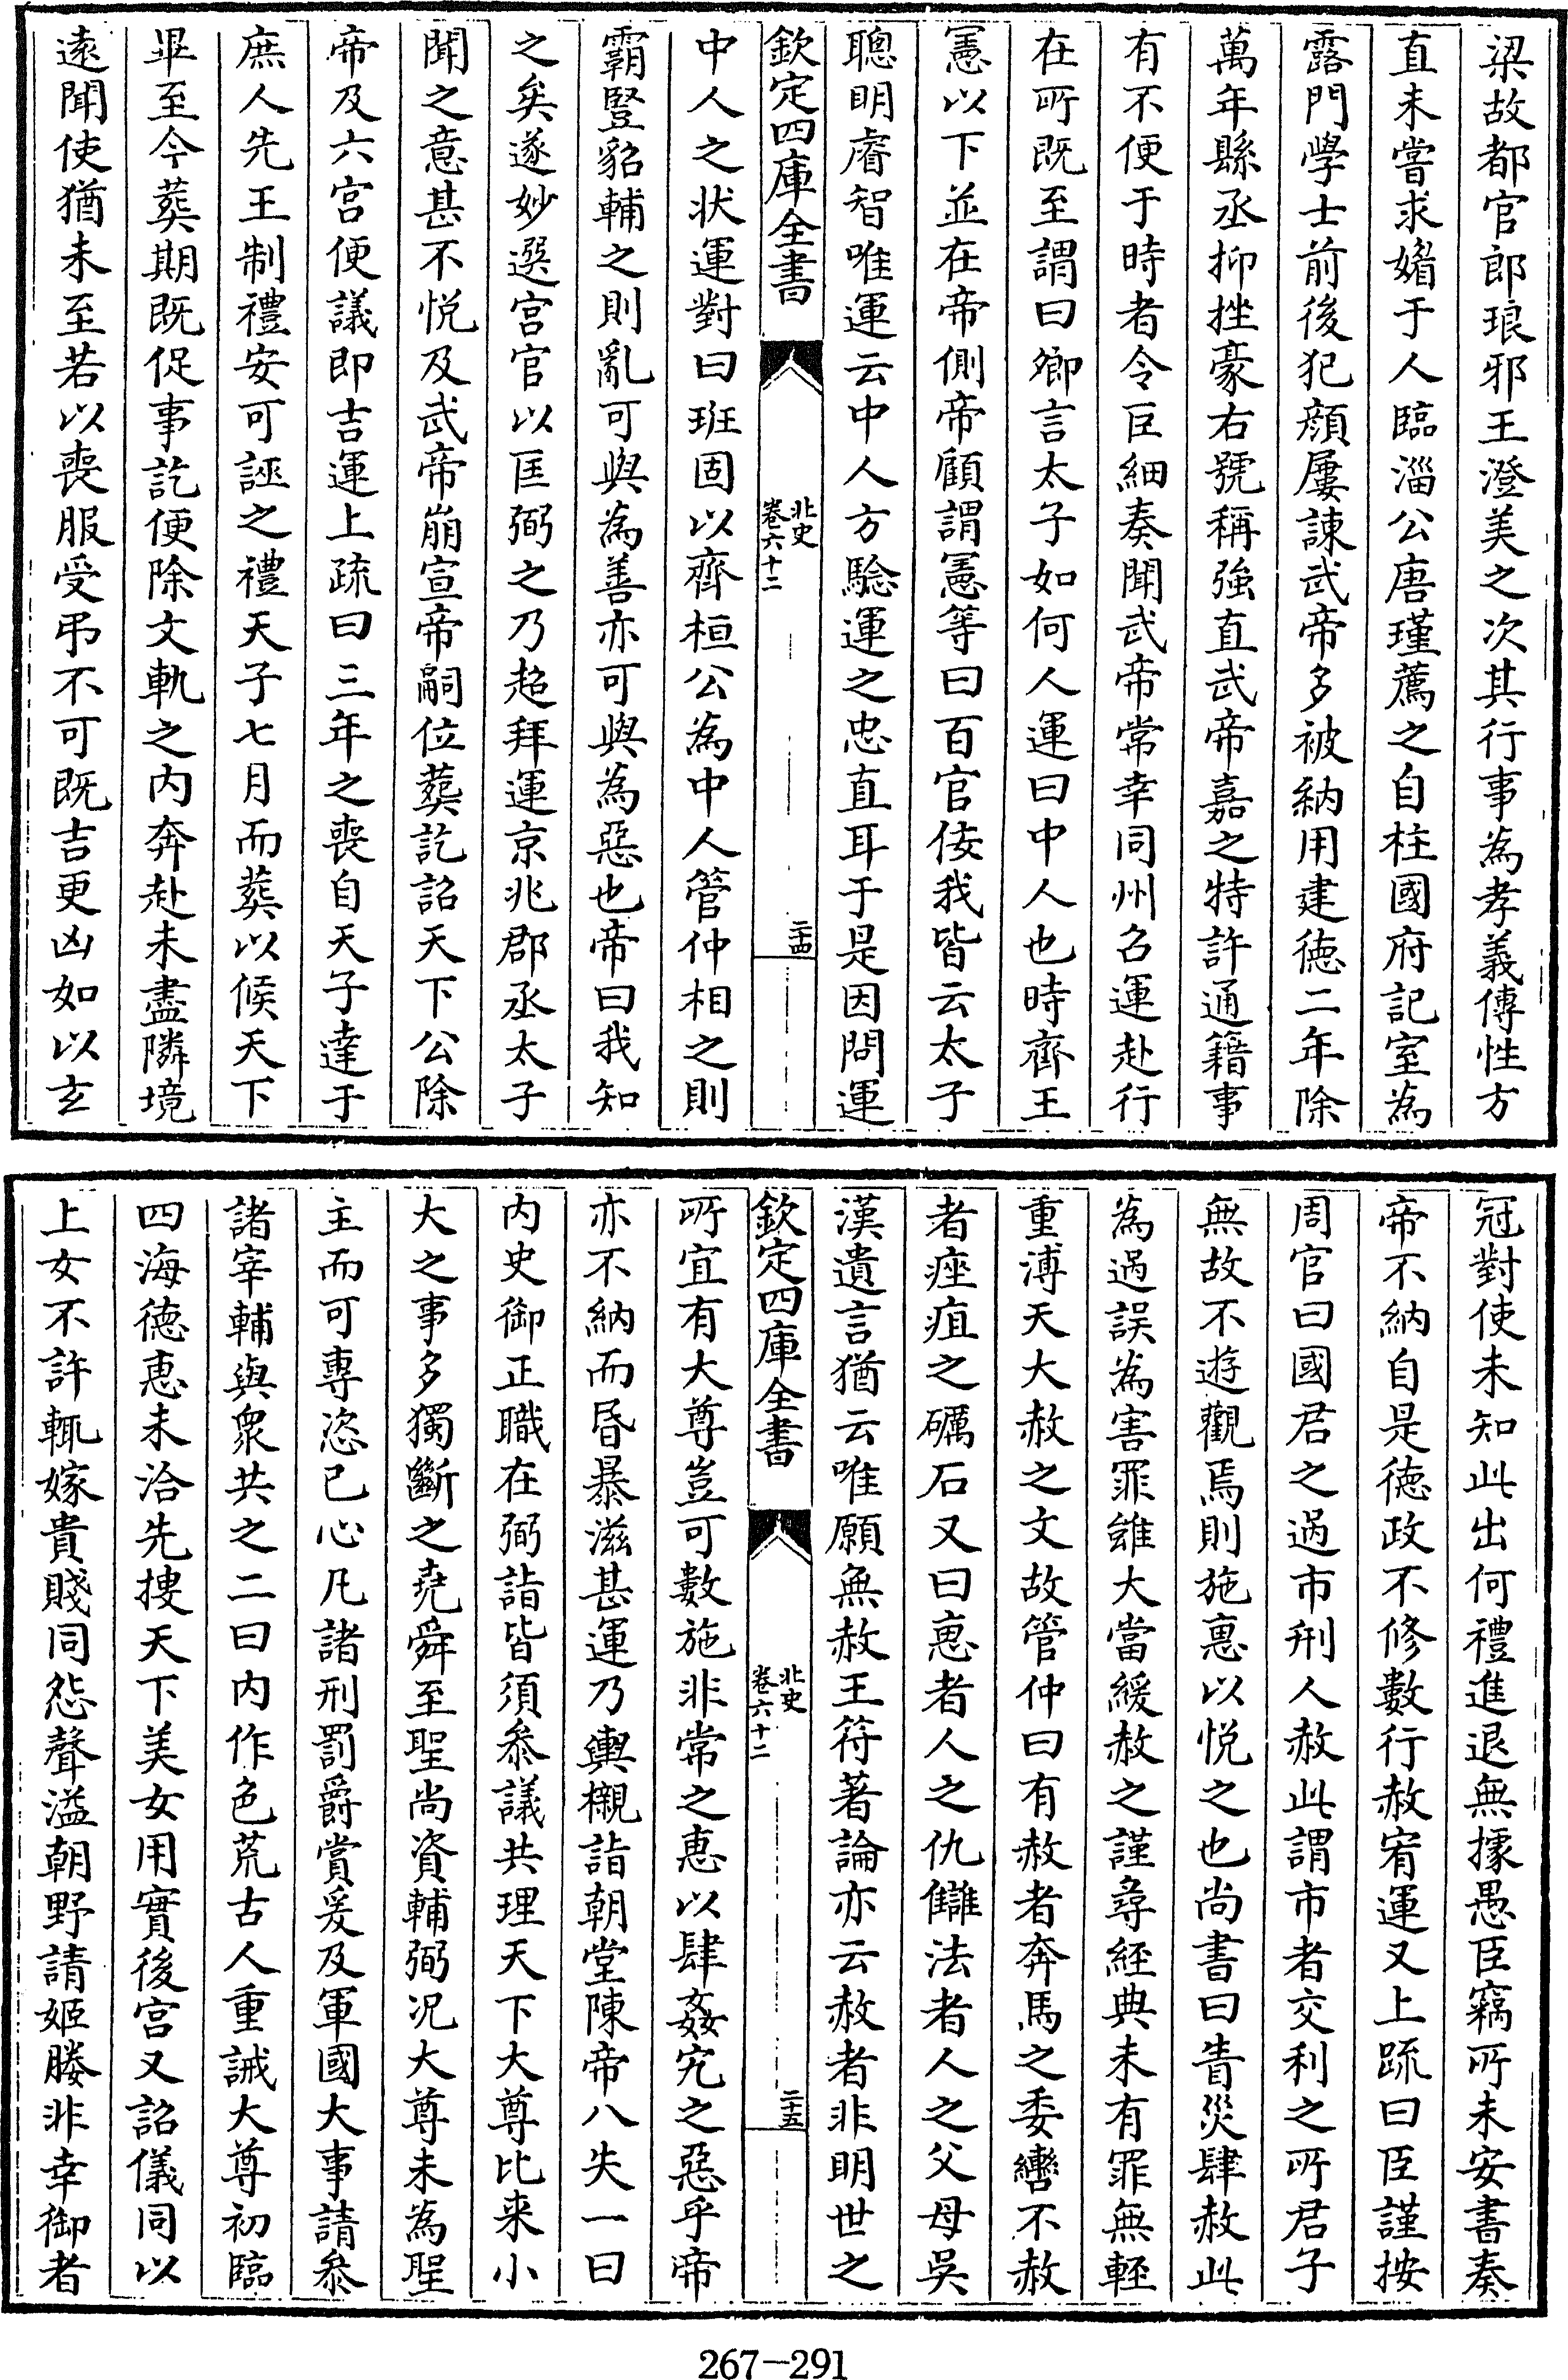 梁故都官郎琅邪王澄美之次其行事為孝義傳性方
直未嘗求媚于人臨淄公唐瑾薦之自柱國府記室為
露門學士前後犯顔屢諫武帝多被納用建德二年除
萬年縣丞抑挫豪右號稱強直武帝嘉之特許通籍事
有不便于時者令巨細奏聞武帝常幸同州召運赴行
在所既至謂曰卿言太子如何人運曰中人也時齊王
憲以下並在帝側帝顧謂憲等曰百官佞我皆云太子
聰明睿智唯運云中人方驗運之忠直耳于是因問運
欽定四庫全書
北史
卷六十二
二十四
中人之状運對曰班固以齊桓公為中人管仲相之則
霸豎貂輔之則亂可與為善亦可與為惡也帝曰我知
之矣遂妙選宫官以匡弼之乃超拜運京兆郡丞太子
聞之意甚不悦及武帝崩宣帝嗣位葬訖詔天下公除
帝及六宫便議即吉運上疏曰三年之喪自天子達于
庶人先王制禮安可誣之禮天子七月而葬以候天下
畢至今葬期既促事訖便除文軌之内奔赴未盡隣境
逺聞使猶未至若以喪服受弔不可既吉更凶如以玄
冠對使未知此出何禮進退無據愚臣竊所未安書奏
帝不納自是德政不修數行赦宥運又上疏曰臣謹按
周官曰國君之過市刑人赦此謂市者交利之所君子
無故不遊觀焉則施惠以悦之也尚書曰眚災肆赦此
為過誤為害罪雖大當緩赦之謹尋經典未有罪無輕
重溥天大赦之文故管仲曰有赦者奔馬之委轡不赦
者痤疽之礪石又曰惠者人之仇讎法者人之父母吳
漢遺言猶云唯願無赦王符著論亦云赦者非明世之
欽定四庫全書
北史
卷六十二
二十五
所宜有大尊豈可數施非常之惠以肆姦宄之惡乎帝
亦不納而昏暴滋甚運乃輿櫬詣朝堂陳帝八失一曰
内史御正職在弼諧皆須參議共理天下大尊比来小
大之事多獨斷之堯舜至聖尚資輔弼况大尊未為聖
主而可專恣已心凡諸刑罰爵賞爰及軍國大事請參
諸宰輔與衆共之二曰内作色荒古人重誡大尊初臨
四海德惠未洽先搜天下美女用實後宫又詔儀同以
上女不許輒嫁貴賤同怨聲溢朝野請姬媵非幸御者
267-291